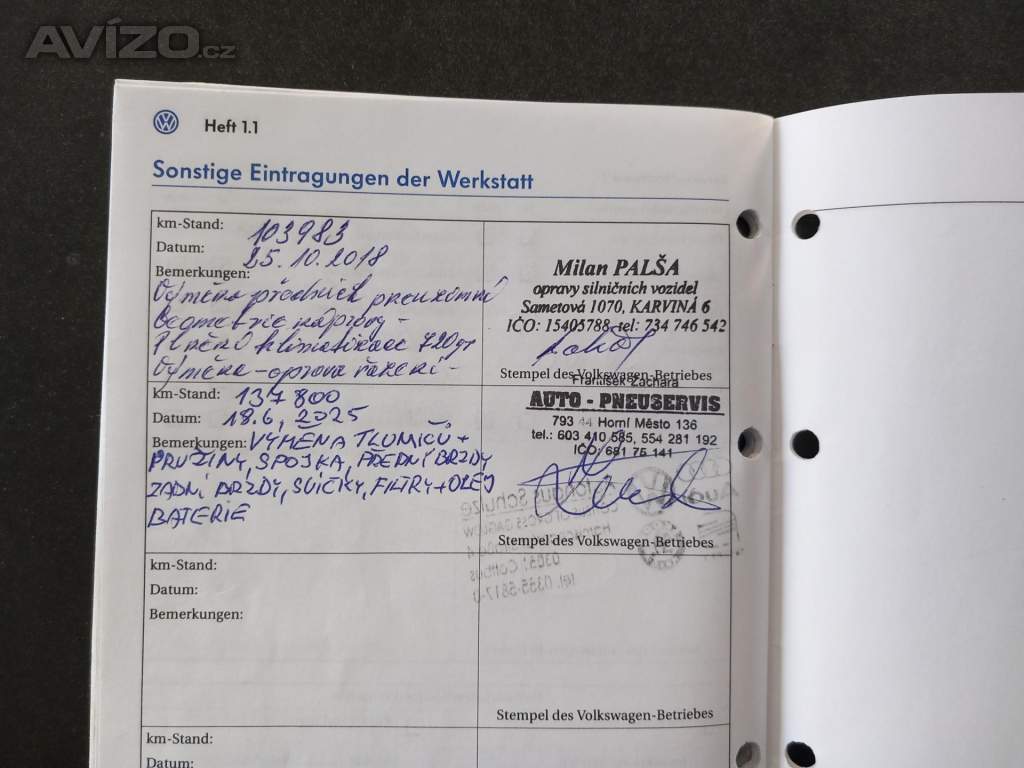 AVÍZO.cz
Heft 1.1
Sonstige Eintragungen der Werkstatt
km-Stand: 103983
Datum: 25.10.2018
Bemerkungen:
Výměna předních pneu zimní
Geometrie nápravy -
Plnění klimatizace 720gr
Výměna - oprava řízení -
Milan PALŠA
opravy silničních vozidel
Sametová 1070, KARVINÁ 6
IČO: 15405788 tel: 734 746 542
Stempel des Volkswagen-Betriebes
km-Stand: 137800
Datum: 18.6.2025
Bemerkungen: VÝMĚNA TLUMIČŮ +
PRUŽINY, SPOJKA, PŘEDNÍ BRZDY
ZADNÍ BRZDY, SVÍČKY, FILTRY + OLEJ
BATERIE
František Zachara
AUTO - PNEUSERVIS
793 44 Horní Město 136
tel.: 603 410 585, 554 281 192
IČO: 681 75 141
Stempel des Volkswagen-Betriebes
km-Stand:
Datum:
Bemerkungen:
Stempel des Volkswagen-Betriebes
km-Stand:
Datum: